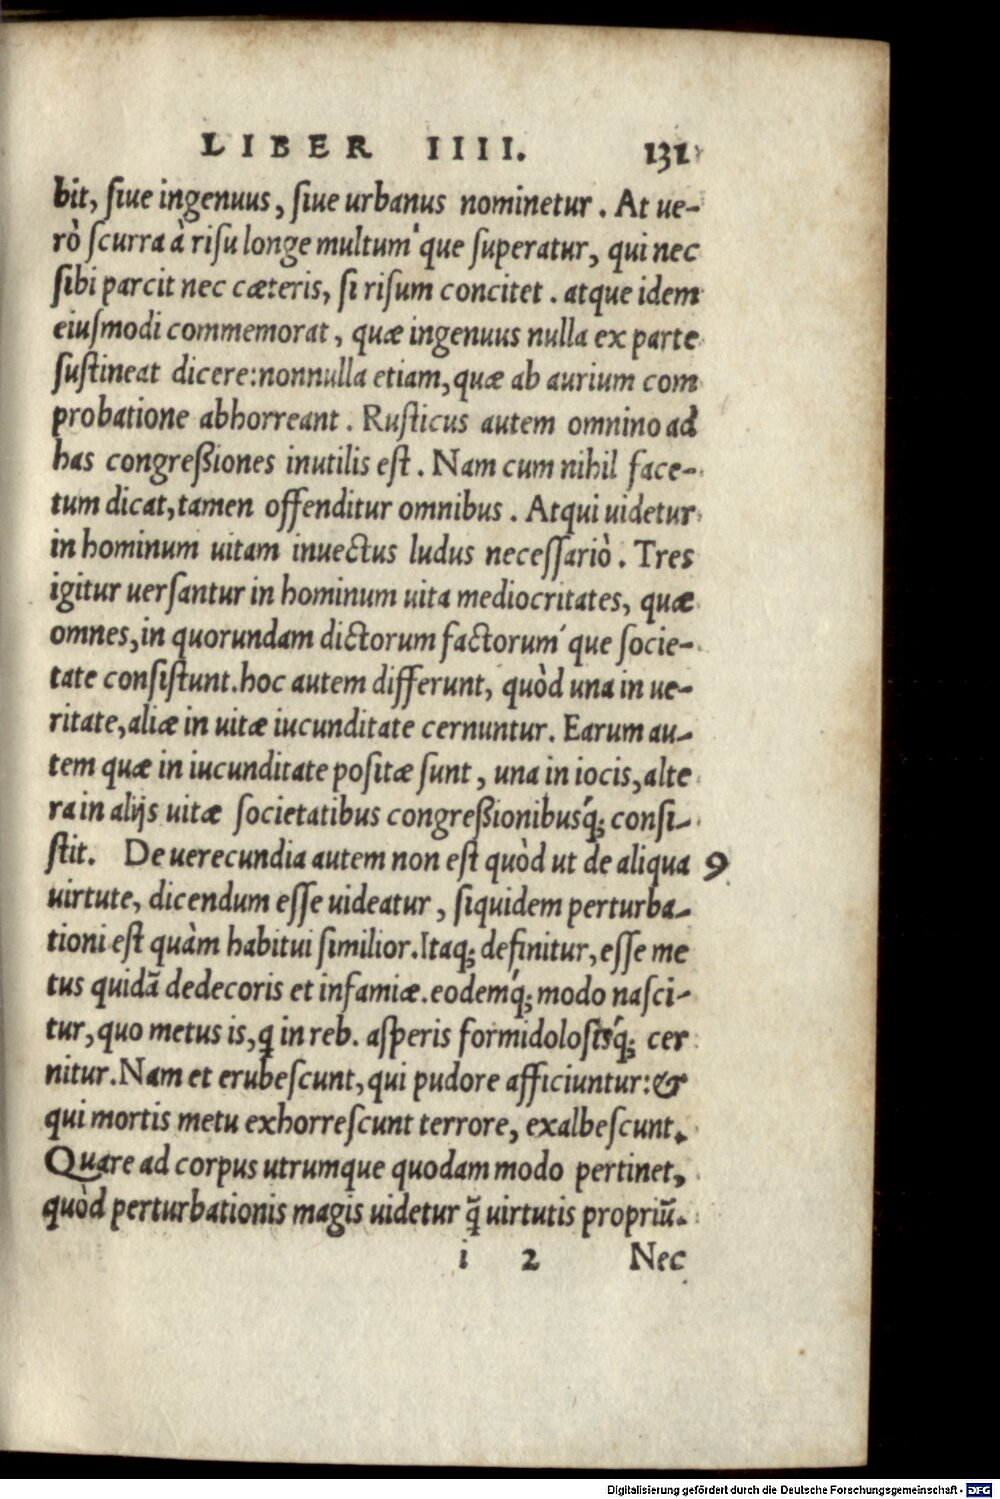 LIBER IIII. 131
bit, ſiue ingenuus, ſiue urbanus nominetur. At ue-
rò ſcurra à riſu longe multum'que ſuperatur, qui nec
ſibi parcit nec cæteris, ſi riſum concitet. atque idem
eiuſmodi commemorat, quæ ingenuus nulla ex parte
ſuſtineat dicere: nonnulla etiam, quæ ab aurium com
probatione abhorreant. Ruſticus autem omnino ad
has congreßiones inutilis eſt. Nam cum nihil face-
tum dicat, tamen offenditur omnibus. Atqui uidetur
in hominum uitam inuectus ludus neceſſariò. Tres
igitur uerſantur in hominum uita mediocritates, quæ
omnes, in quorundam dictorum factorum'que ſocie-
tate conſiſtunt. hoc autem differunt, quòd una in ue-
ritate, aliæ in uitæ iucunditate cernuntur. Earum au-
tem quæ in iucunditate poſitæ ſunt, una in iocis, alte
ra in alijs uitæ ſocietatibus congreßionibusq́; conſi-
ſtit. De uerecundia autem non eſt quòd ut de aliqua 9
uirtute, dicendum eſſe uideatur, ſiquidem perturba-
tioni eſt quàm habitui ſimilior. Itaq; definitur, eſſe me
tus quidã dedecoris et infamiæ. eodemq́; modo naſci-
tur, quo metus is, q in reb. aſperis formidoloſisq́; cer
nitur. Nam et erubeſcunt, qui pudore afficiuntur: &
qui mortis metu exhorreſcunt terrore, exalbeſcunt.
Quare ad corpus utrumque quodam modo pertinet,
quòd perturbationis magis uidetur q̃ uirtutis propriũ.
i 2 Nec
Digitalisierung gefördert durch die Deutsche Forschungsgemeinschaft - DFG